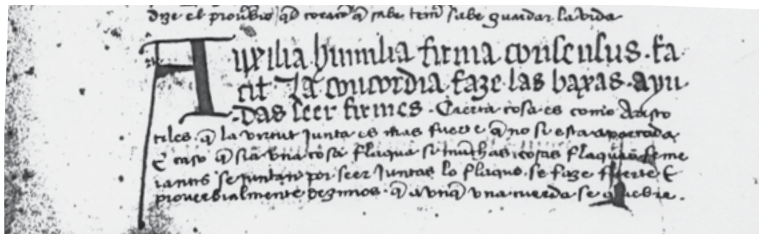 dize el prouerbio q̄ corazō q̄ sabe temer sabe guardar la vida
Auxilia humilia firma consensus fa
cit La concordia faze las baxas ayu
das seer firmes. Cierta cosa es como Aristo
tiles. q̄ la virtut junta es mas fuerte q̄ no si esta apartada
E caso q̄ sia vna cosa flaqua si muchas cosas flaquas seme
iantes se juntan por seer juntas lo flaquo. se faze fuerte E
prouerbialmente dezimos. q̄ avnq̄ vna cuerda se quebre.